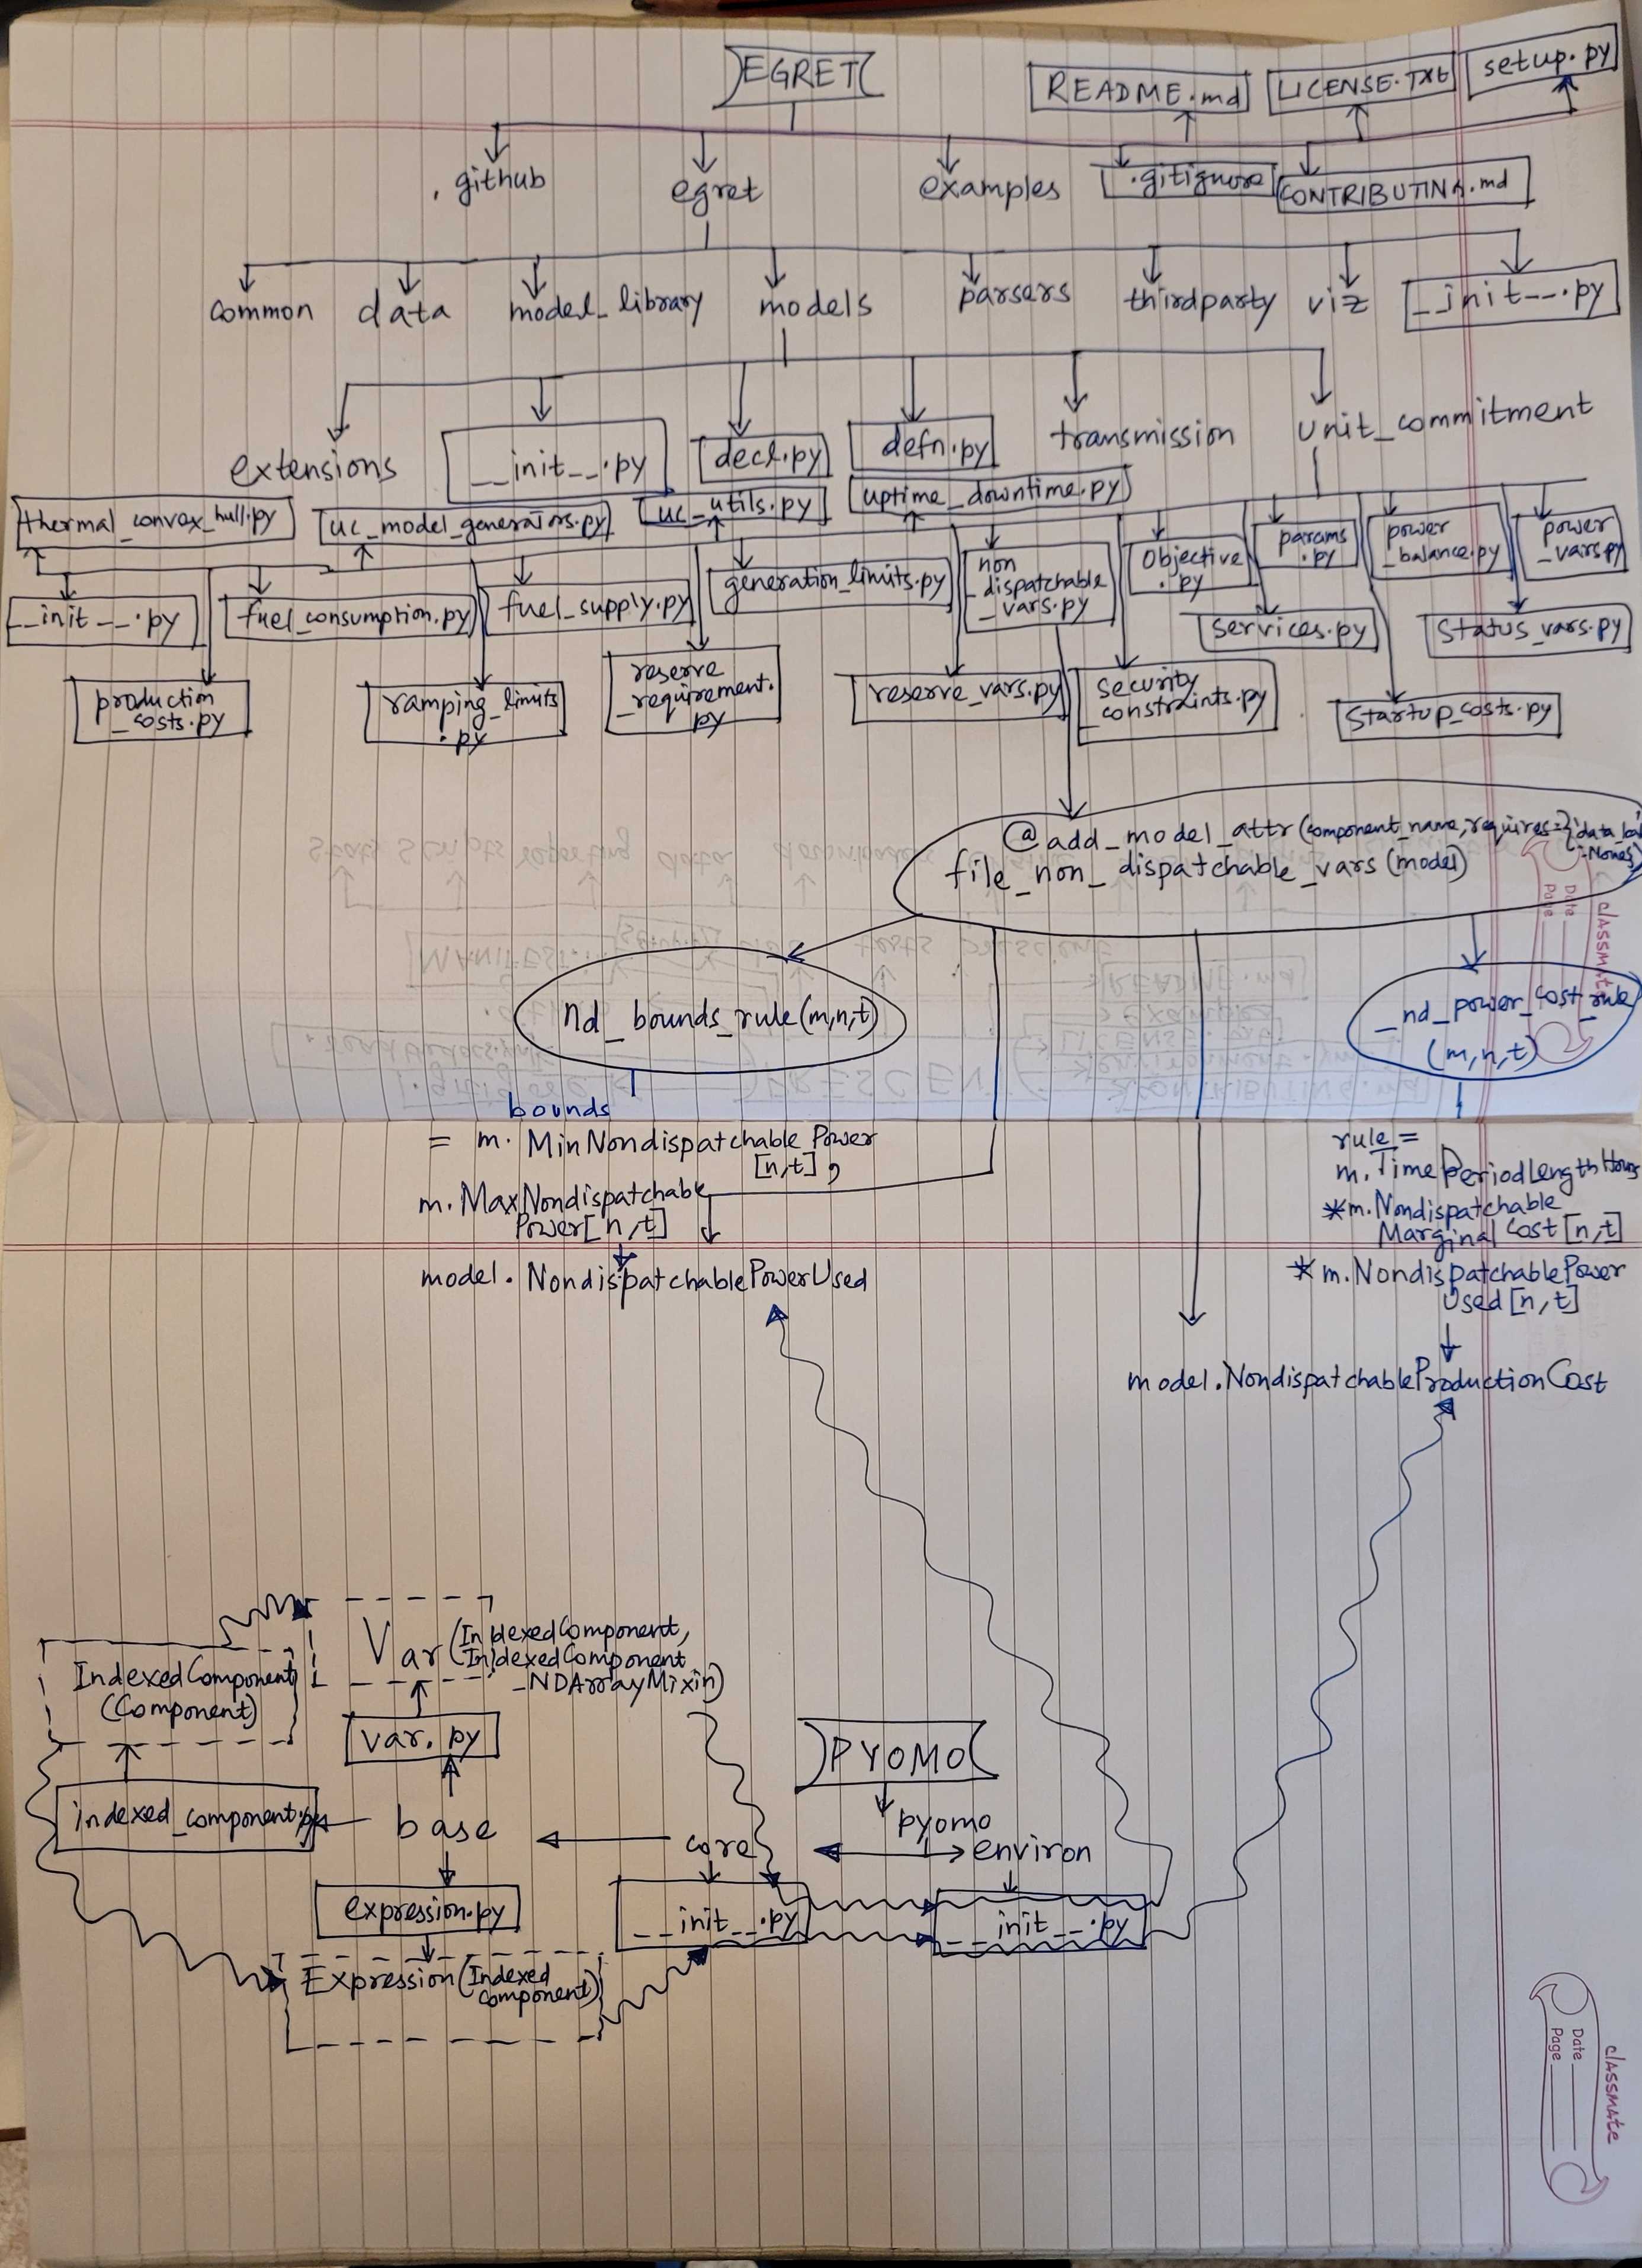 EGRET
README.md
LICENSE.TXT
setup.py
.github
egret
examples
.gitignore
CONTRIBUTING.md
common
data
model_library
models
parsers
thirdparty
viz
__init__.py
extensions
__init__.py
decl.py
defn.py
transmission
unit_commitment
thermal_convex_hull.py
uc_model_generators.py
uc_utils.py
uptime_downtime.py
__init__.py
fuel_consumption.py
fuel_supply.py
generation_limits.py
non
_dispatchable
_vars.py
Objective
.py
params
.py
power
_balance.py
power
_vars.py
services.py
Status_vars.py
production
_costs.py
ramping_limits
.py
reserve
_requirement.
py
reserve_vars.py
security
_constraints.py
Startup_costs.py
@add_model_attr(component_name,requires={'data_loa
:None}
file_non_dispatchable_vars(model)
nd_bounds_rule(m,n,t)
_nd_power_cost_rule
(m,n,t)
bounds
= m. MinNondispatchable Power
[n,t] ,
m.MaxNondispatchable
Power[n,t]
model. NondispatchablePowerUsed
rule =
m.TimePeriodLengthHours
*m.Nondispatchable
Marginal Cost[n,t]
*m.NondispatchablePower
Used[n,t]
model.NondispatchableProductionCost
Var(IndexedComponent,
IndexedComponent
_NDArrayMixin)
IndexedComponent
(Component)
var.py
PYOMO
indexed_component.py
base
core
pyomo
environ
expression.py
__init__.py
__init__.py
Expression(Indexed
component)
classmate
Date
Page
classmate
Date
Page